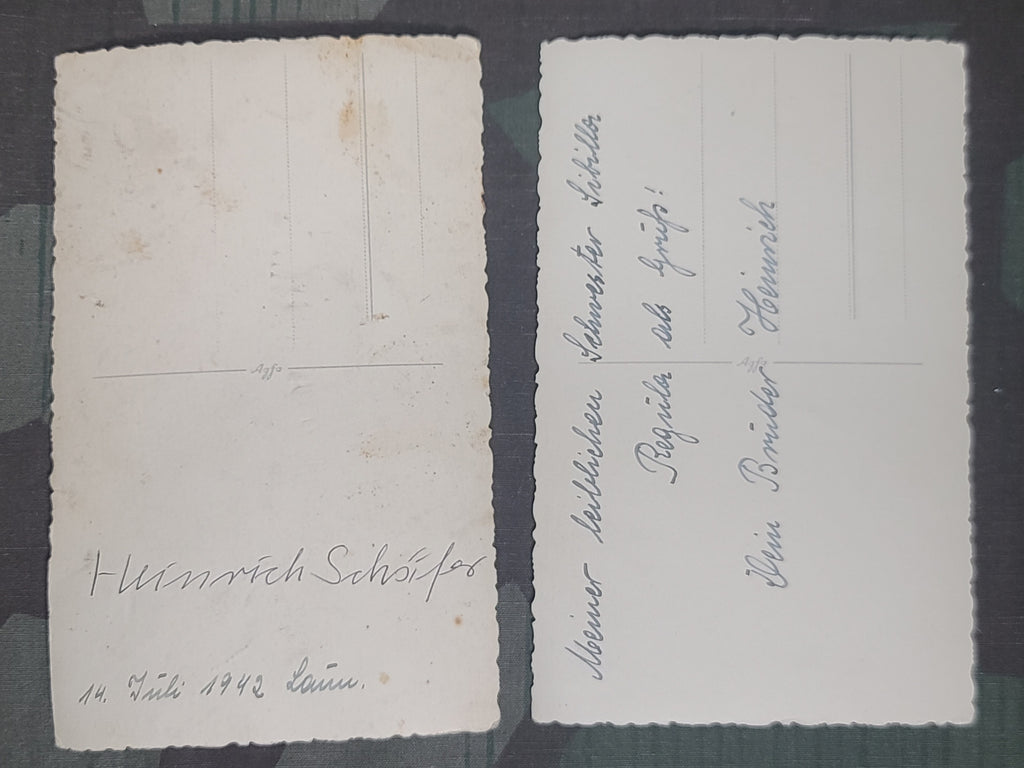 Agfa
Heinrich Schäfer
14. Juli 1942 Laun.
Agfa
Meiner leiblichen Schwester Sibilla
Regula als Gruß!
Dein Bruder Heinrich